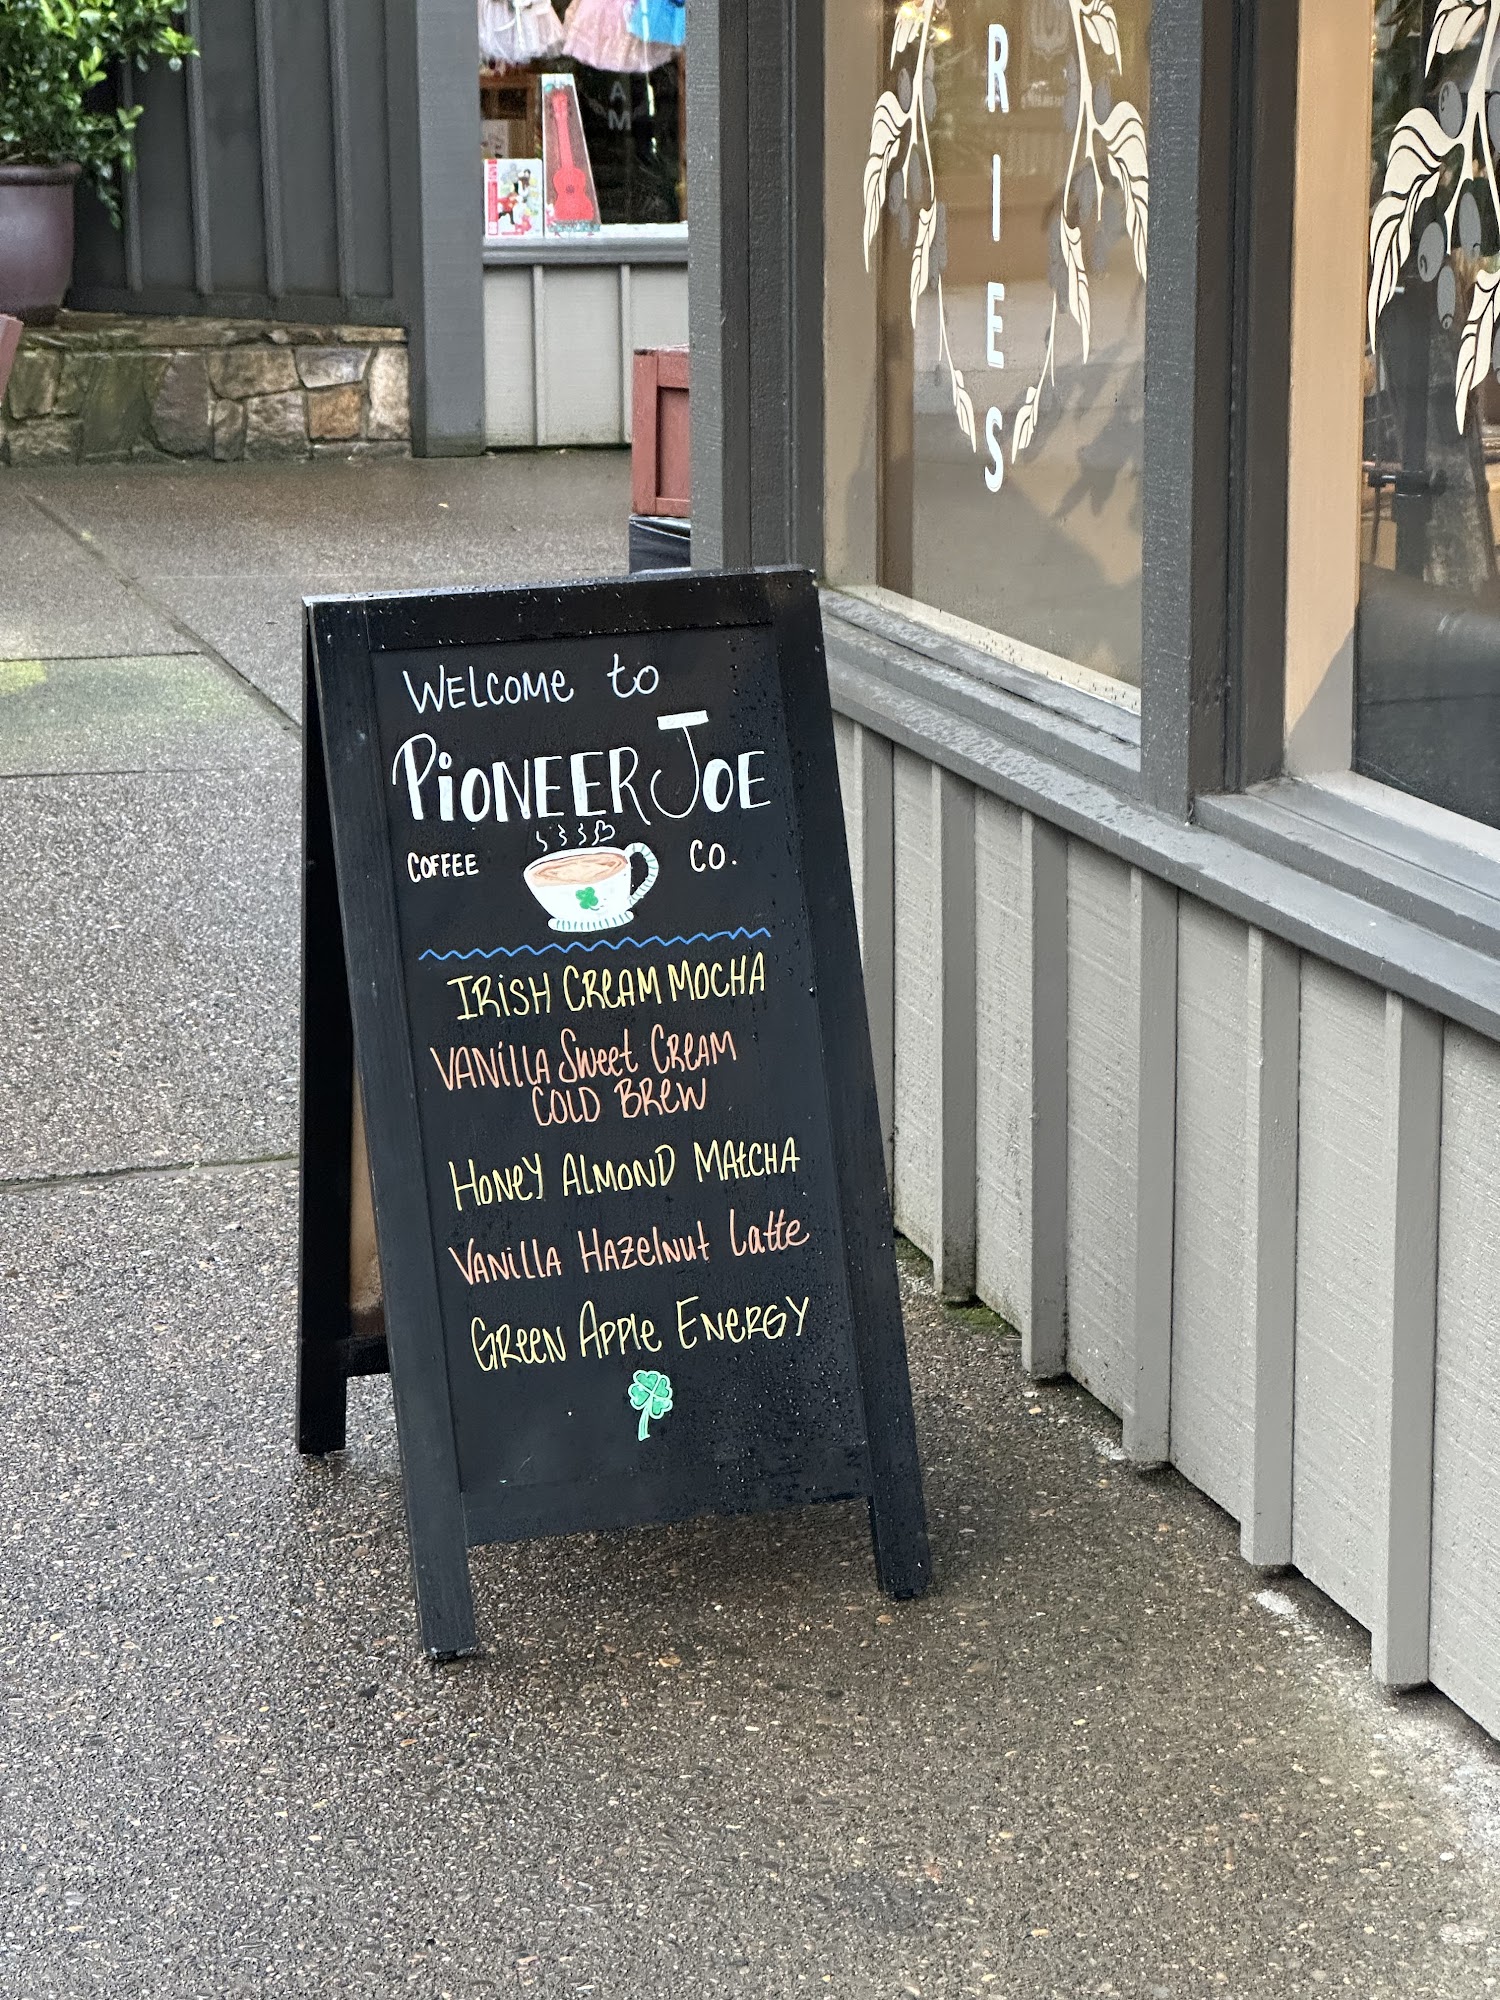 WELCOME to
PiONEER JOE
COFFEE CO.
IRiSH CREAM MOCHA
VANiLLA Sweet CREAM
COLD BREW
HONEY ALMOND MAtCHA
VANiLLA HAZelNut Latte
GREEN APPlE ENERGY
R
I
E
S
A
M